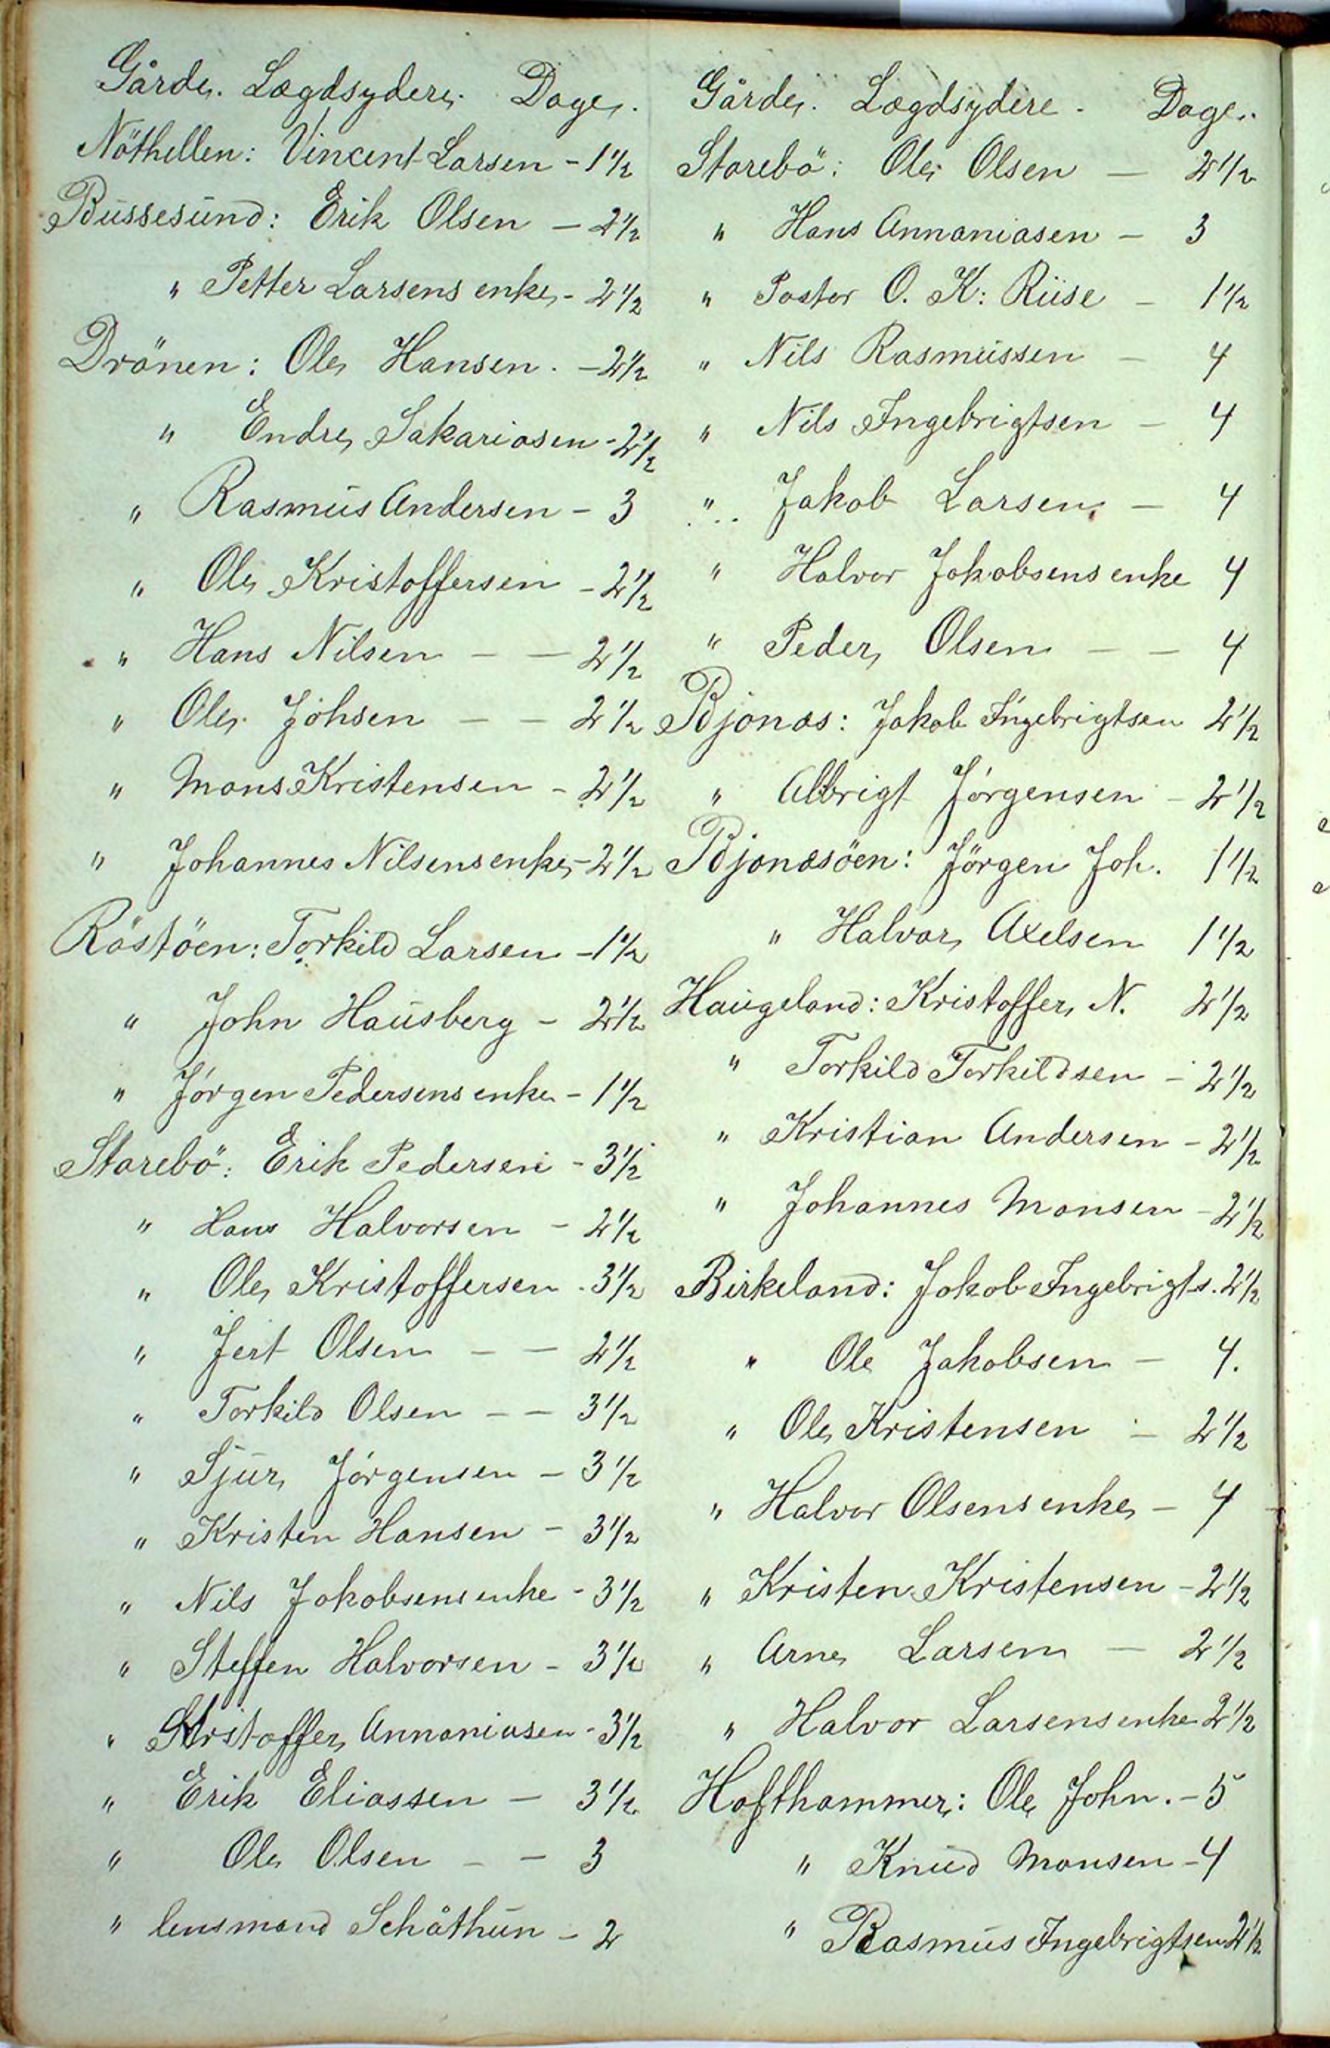 Gårde. Lægdsydere. Dage.
Nöthellen: Vincent Larsen - 1 1/2
Bussesund: Erik Olsen - 2 1/2
" Petter Larsens enke - 2 1/2
Drönen: Ole Hansen. - 2 1/2
" Endre Sakariasen - 2 1/2
" Rasmus Andersen - 3
" Ole Kristoffersen - 2 1/2
" Hans Nilsen - - 2 1/2
" Ole Johsen - - 2 1/2
" Mons Kristensen - 2 1/2
" Johannes Nilsens enke - 2 1/2
Röstöen: Torkild Larsen - 1 1/2
" John Hausberg - 2 1/2
" Jörgen Pedersens enke - 1 1/2
Storebö: Erik Pedersen - 3 1/2
" Hans Halvorsen - 2 1/2
" Ole Kristoffersen - 3 1/2
" Jert Olsen - - 2 1/2
" Torkild Olsen - - 3 1/2
" Sjur Jörgensen - 3 1/2
" Kristen Hansen - 3 1/2
" Nils Jakobsens enke - 3 1/2
" Steffen Halvorsen - 3 1/2
" Kristoffer Annaniasen - 3 1/2
" Erik Eliassen - 3 1/2
" Ole Olsen - - 3
" lensmand Schåthun - 2
Gårde. Lægdsydere - Dage.
Storebö: Ole Olsen - 2 1/2
" Hans Annaniasen - 3
" Pastor O. K: Riise - 1 1/2
" Nils Rasmussen - 4
" Nils Ingebrigtsen - 4
" Jakob Larsen - 4
" Halvor Jakobsens enke 4
" Peder Olsen - - 4
Bjonæs: Jakob Ingebrigtsen 2 1/2
" Albrigt Jörgensen - 2 1/2
Bjonæsöen: Jörgen Joh. 1 1/2
" Halvor Axelsen 1 1/2
Haugeland: Kristoffer N. 2 1/2
" Torkild Torkildsen - 2 1/2
" Kristian Andersen - 2 1/2
" Johannes Monsen - 2 1/2
Birkeland: Jakob Ingebrigts. 2 1/2
" Ole Jakobsen - 4.
" Ole Kristensen - 2 1/2
" Halvor Olsens enke - 4
" Kristen Kristensen - 2 1/2
" Arne Larsen - 2 1/2
" Halvor Larsens enke 2 1/2
Hofthammer: Ole John. - 5
" Knud Monsen - 4
" Rasmus Ingebrigtsen 2 1/2